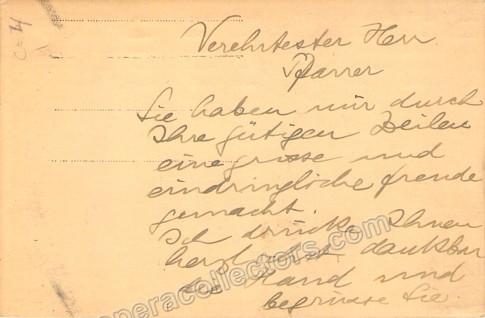 Verehrtester Herr
Pfarrer
Sie haben mir durch
Ihre gütigen Zeilen
eine grosse und
eindringliche Freude
gemacht.
Ich drücke Ihnen
herzlichst dankbar
die Hand und
begrüsse Sie
operacollectors.com